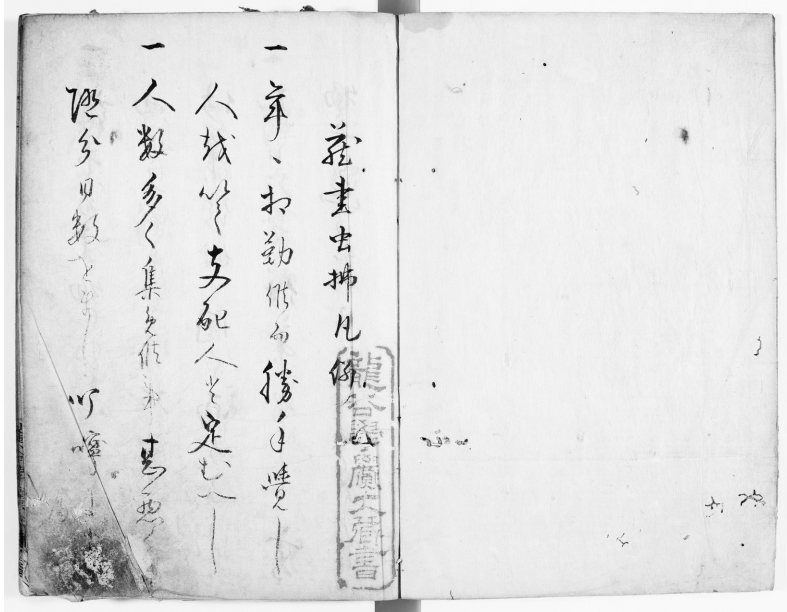 蔵書虫拂凡例
一年々相勤候而勝手覚し
人越以支配人と定むへし
一人数多く集免候事甚悪
随分日数を
龍谷學黌大藏書